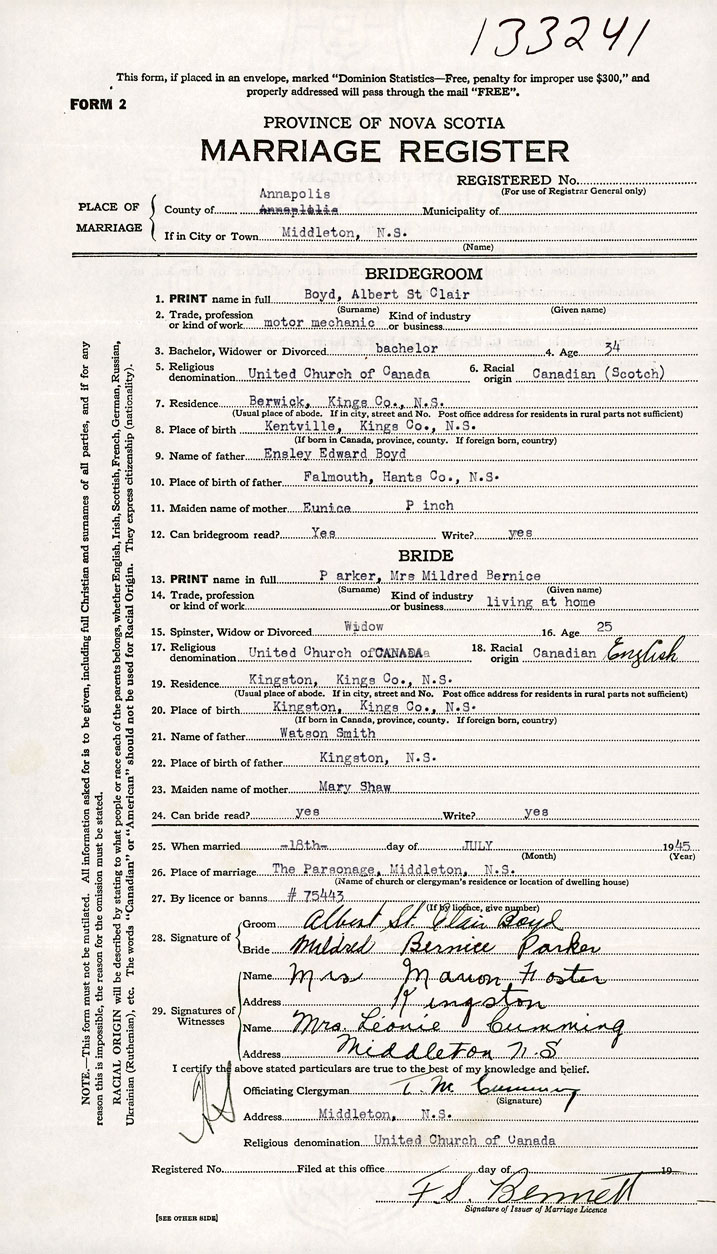 133241
This form, if placed in an envelope, marked "Dominion Statistics—Free, penalty for improper use $300," and
properly addressed will pass through the mail "FREE".
FORM 2
PROVINCE OF NOVA SCOTIA
MARRIAGE REGISTER
REGISTERED No.
(For use of Registrar General only)
PLACE OF MARRIAGE
Annapolis
County of Annaplolis Municipality of
If in City or Town Middleton, N.S.
(Name)
BRIDEGROOM
1. PRINT name in full Boyd, Albert St Clair
(Surname) (Given name)
2. Trade, profession or kind of work motor mechanic Kind of industry or business
3. Bachelor, Widower or Divorced bachelor 4. Age 34
5. Religious denomination United Church of Canada 6. Racial origin Canadian (Scotch)
7. Residence Berwick, Kings Co., N.S.
(Usual place of abode. If in city, street and No. Post office address for residents in rural parts not sufficient)
8. Place of birth Kentville, Kings Co., N.S.
(If born in Canada, province, county. If foreign born, country)
9. Name of father Ensley Edward Boyd
10. Place of birth of father Falmouth, Hants Co., N.S.
11. Maiden name of mother Eunice P inch
12. Can bridegroom read? Yes Write? yes
BRIDE
13. PRINT name in full P arker, Mrs Mildred Bernice
(Surname) (Given name)
14. Trade, profession or kind of work Kind of industry or business living at home
15. Spinster, Widow or Divorced Widow 16. Age 25
17. Religious denomination United Church of CANADA 18. Racial origin Canadian English
19. Residence Kingston, Kings Co., N.S.
(Usual place of abode. If in city, street and No. Post office address for residents in rural parts not sufficient)
20. Place of birth Kingston, Kings Co., N.S.
(If born in Canada, province, county. If foreign born, country)
21. Name of father Watson Smith
22. Place of birth of father Kingston, N.S.
23. Maiden name of mother Mary Shaw
24. Can bride read? yes Write? yes
25. When married -18th- day of JULY 1945
(Month) (Year)
26. Place of marriage The Parsonage, Middleton, N.S.
(Name of church or clergyman's residence or location of dwelling house)
27. By licence or banns # 75443
(If by licence, give number)
28. Signature of
Groom Albert St. Clair Boyd
Bride Mildred Bernice Parker
29. Signatures of Witnesses
Name Mrs Marion Foster
Address Kingston
Name Mrs. Leonie Cumming
Address Middleton N.S
I certify the above stated particulars are true to the best of my knowledge and belief.
Officiating Clergyman T. M. Cumming
(Signature)
Address Middleton, N.S.
Religious denomination United Church of Canada
Registered No. Filed at this office day of 19
F.S. Bennett
Signature of Issuer of Marriage Licence
[SEE OTHER SIDE]
NOTE.—This form must not be mutilated. All information asked for is to be given, including full Christian and surnames of all parties, and if for any
reason this is impossible, the reason for the omission must be stated.
RACIAL ORIGIN will be described by stating to what people or race each of the parents belongs, whether English, Irish, Scottish, French, German, Russian,
Ukrainian (Ruthenian), etc. The words "Canadian" or "American" should not be used for Racial Origin. They express citizenship (nationality).